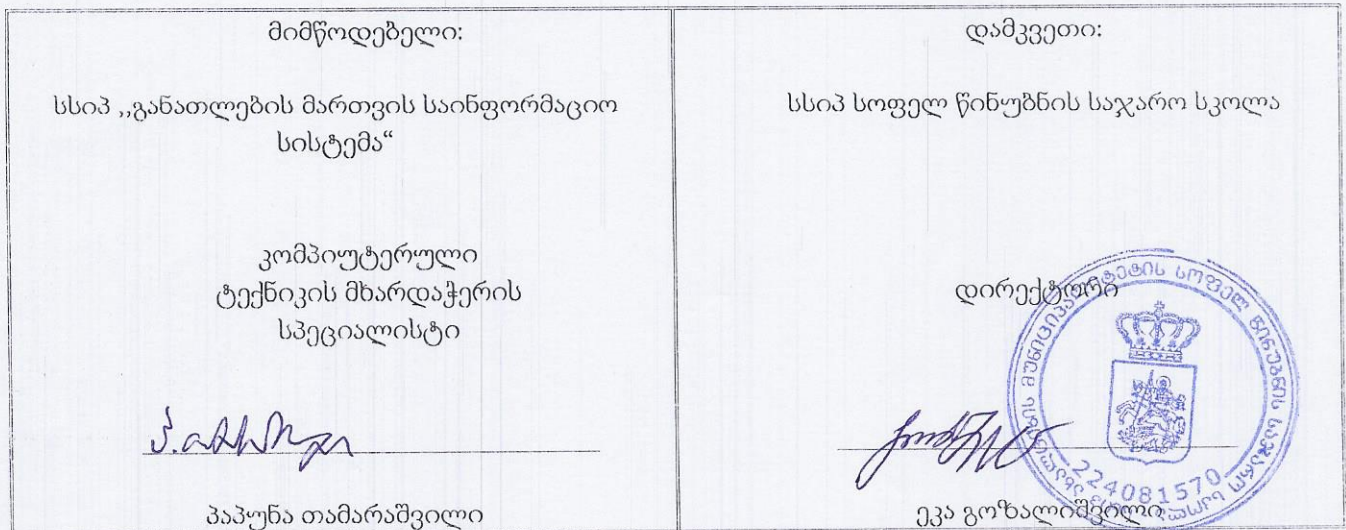 მიმწოდებელი:
სსიპ ,,განათლების მართვის საინფორმაციო
სისტემა“
კომპიუტერული
ტექნიკის მხარდაჭერის
სპეციალისტი
პაპუნა თამარაშვილი
დამკვეთი:
სსიპ სოფელ წინუბნის საჯარო სკოლა
დირექტორი
მუნიციპალიტეტის სოფელ წინუბნის საჯარო
224081570
ეკა გოზალიშვილი